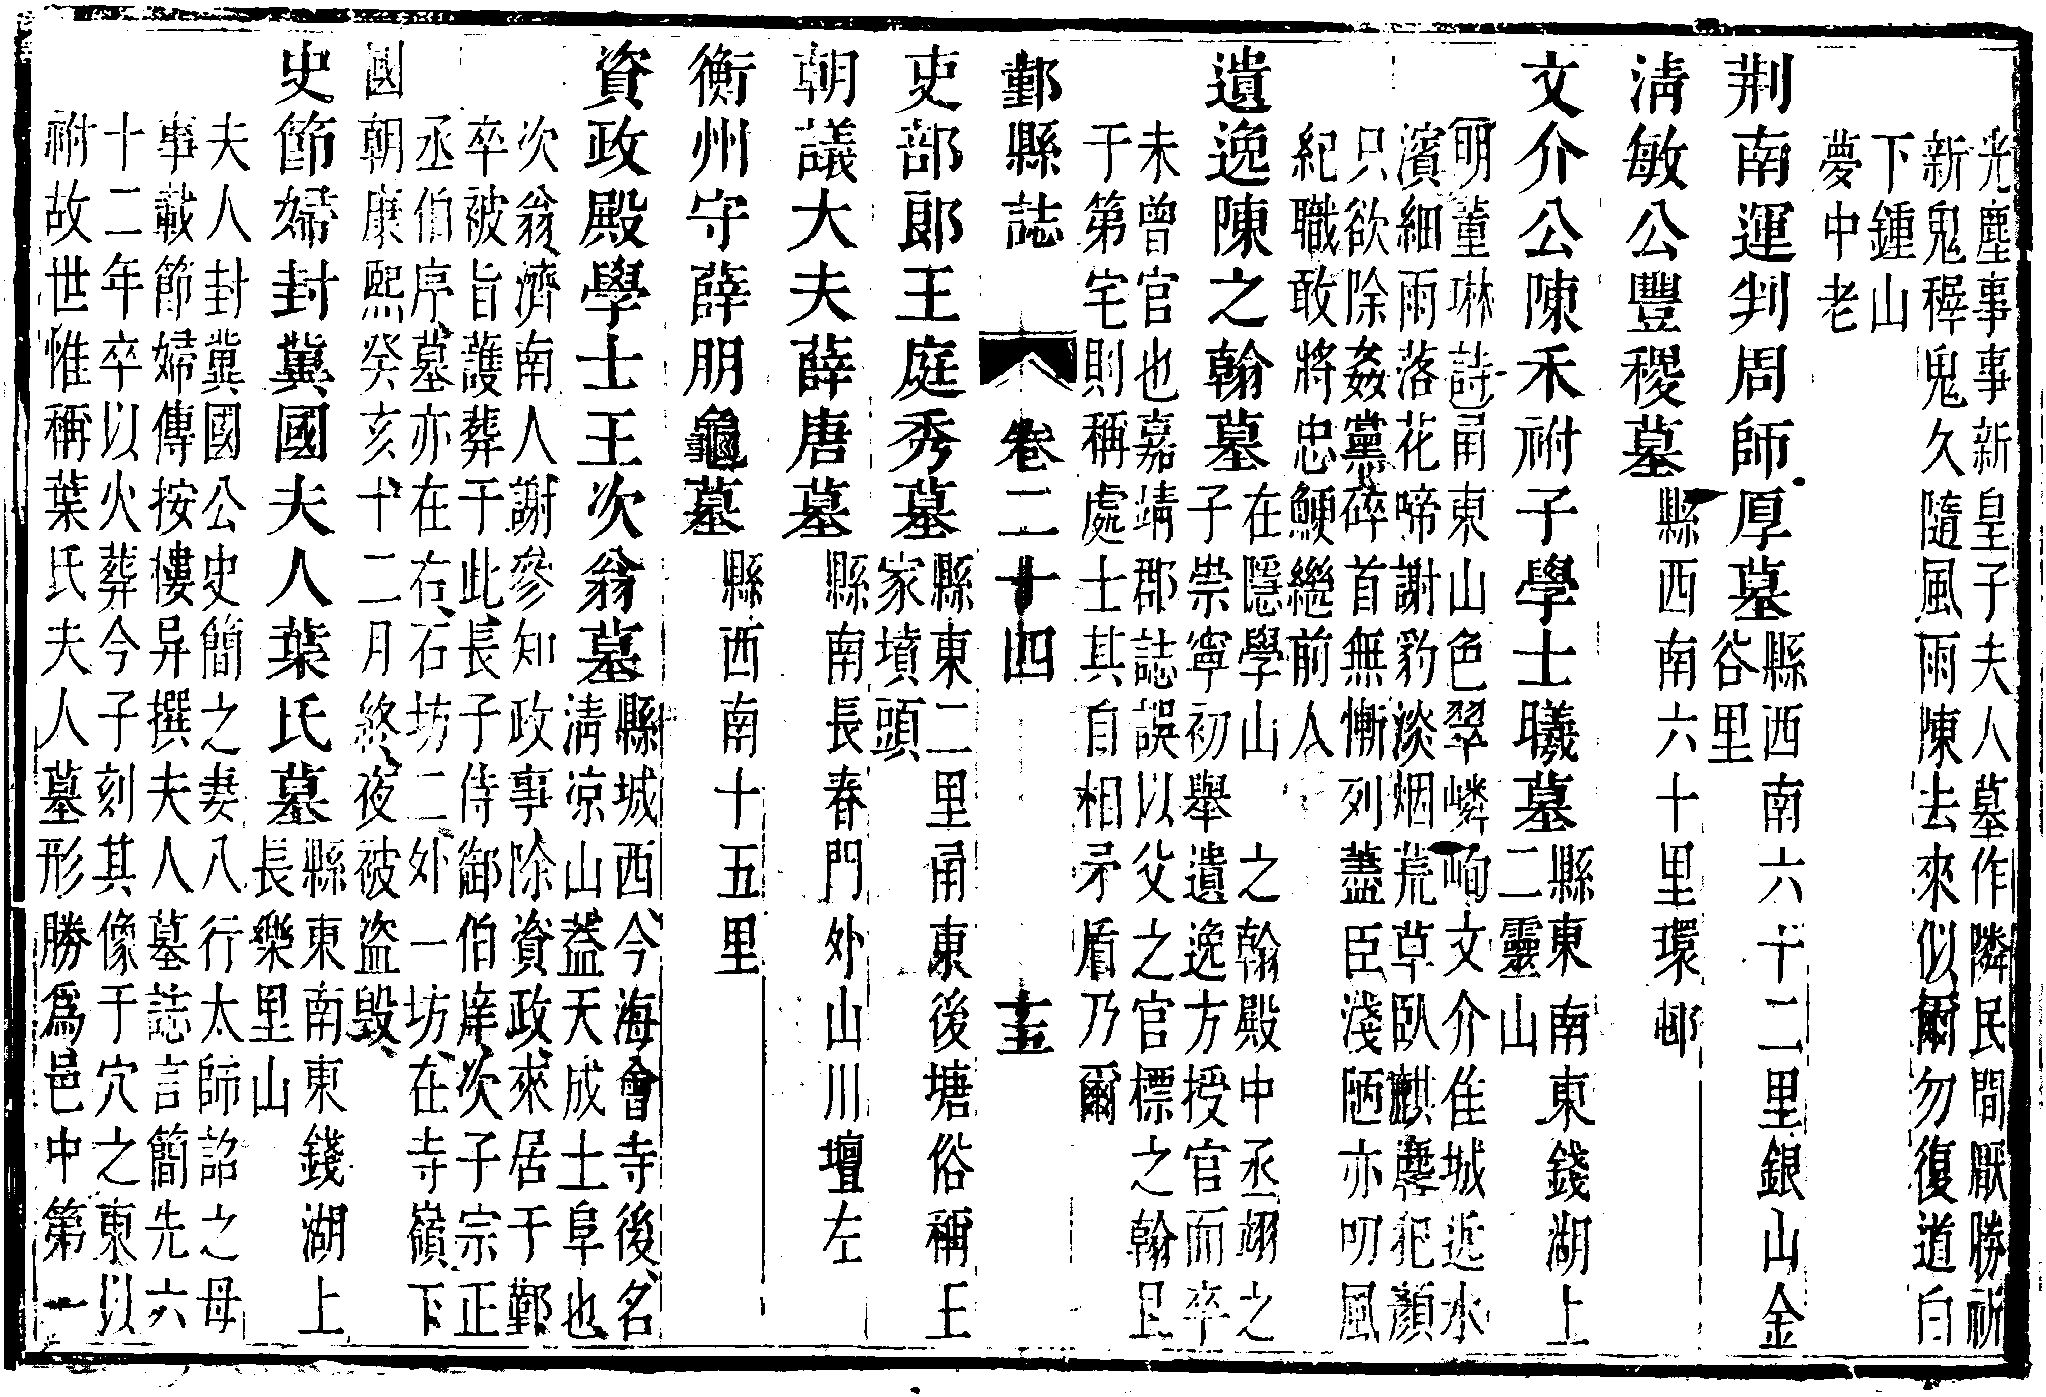 光塵事事新皇子夫人墓作隣民間厭勝祈
新鬼穉鬼久隨風雨陳去來似爾勿復道白
下鍾山
夢中老
荆南運判周師厚墓縣西南六十二里銀山金
谷里
清敏公豐稷墓縣西南六十里環邨
文介公陳禾祔子學士曦墓縣東南東錢湖上
二靈山
明董琳詩甬東山色翠嶙峋文介佳城近水
濱細雨落花啼謝豹淡烟荒草臥麒麐犯顏
只欲除姦黨碎首無慚列藎臣淺陋亦叨風
紀職敢將忠鯁繼前人
遺逸陳之翰墓在隱學山 之翰殿中丞翊之
子崇寧初舉遺逸方授官而卒
未曾官也嘉靖郡誌誤以父之官標之翰且
于第宅則稱處士其自相矛盾乃爾
鄞縣誌 卷二十四 十五
吏部郎王庭秀墓縣東二里甬東後塘俗稱王
家墳頭
朝議大夫薛唐墓縣南長春門外山川壇左
衡州守薛朋龜墓縣西南十五里
資政殿學士王次翁墓縣城西今海會寺後名
清凉山蓋天成土阜也
次翁濟南人謝參知政事除資政來居于鄞
卒被旨護葬于此長子侍御伯庠次子宗正
丞伯序墓亦在右石坊二外一坊在寺嶺下
國朝康熙癸亥十二月終夜被盜毀
史節婦封冀國夫人葉氏墓縣東南東錢湖上
長樂里山
夫人封冀國公史簡之妻八行太師詔之母
事載節婦傳按樓异撰夫人墓誌言簡先六
十二年卒以火葬今子刻其像于穴之東以
祔故世惟稱葉氏夫人墓形勝爲邑中第一